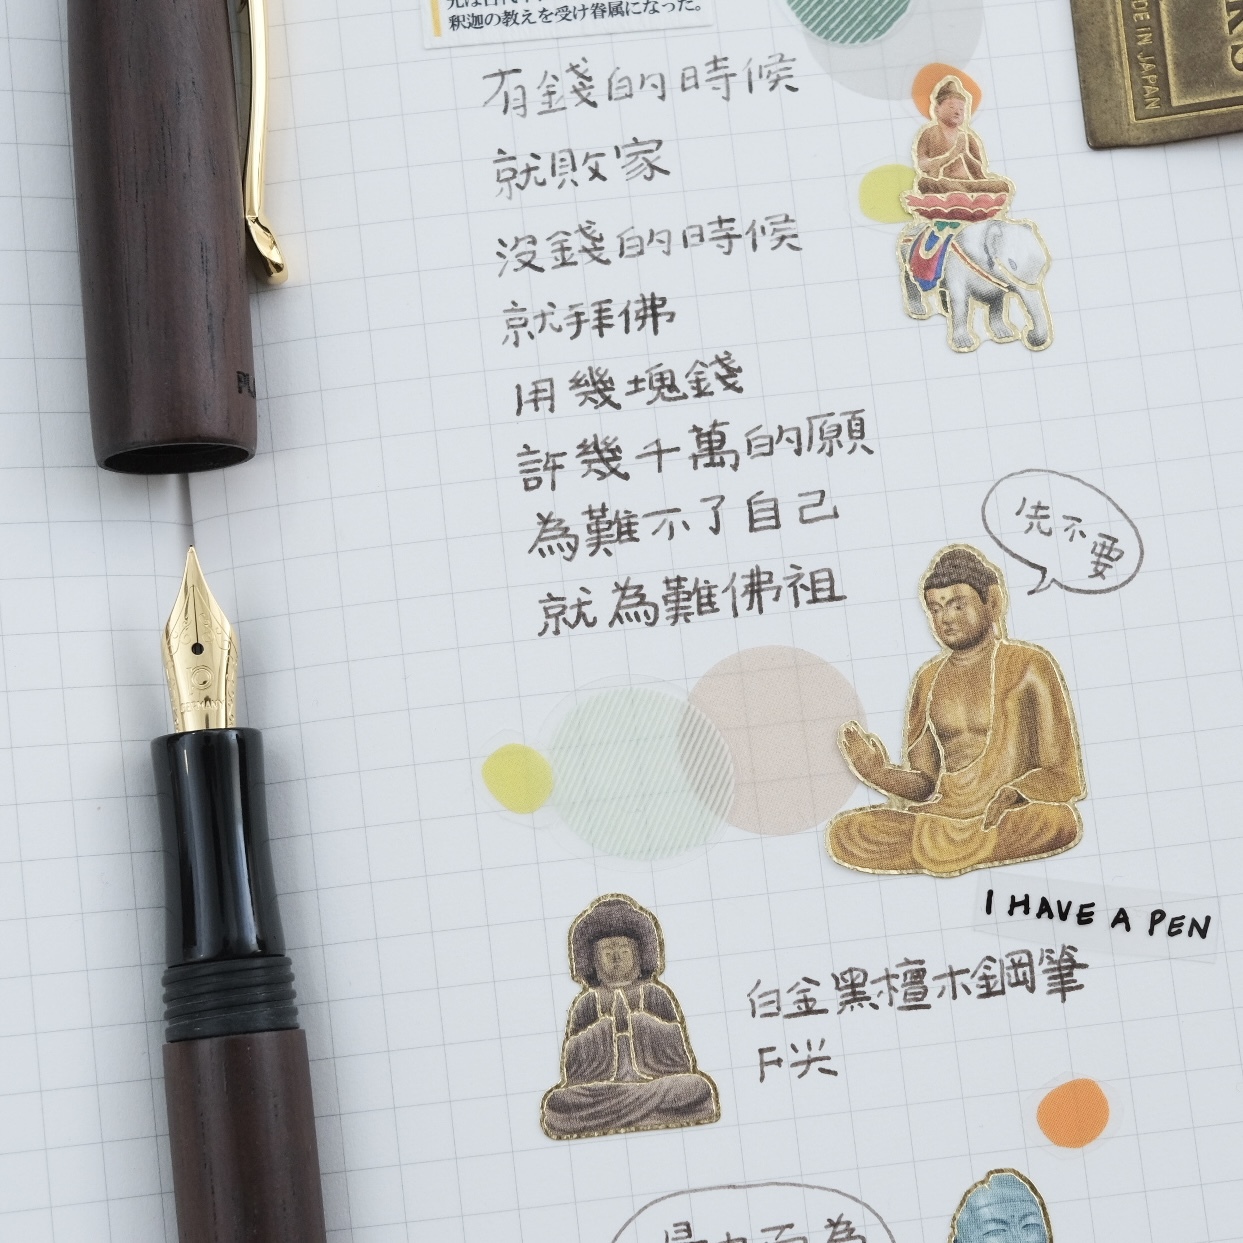 釈迦の教えを受け眷属になった。
MADE IN JAPAN
有錢的時候
就敗家
沒錢的時候
就拜佛
用幾塊錢
許幾千萬的願
為難不了自己
就為難佛祖
先不要
I HAVE A PEN
白金黑檀木鋼筆
F尖